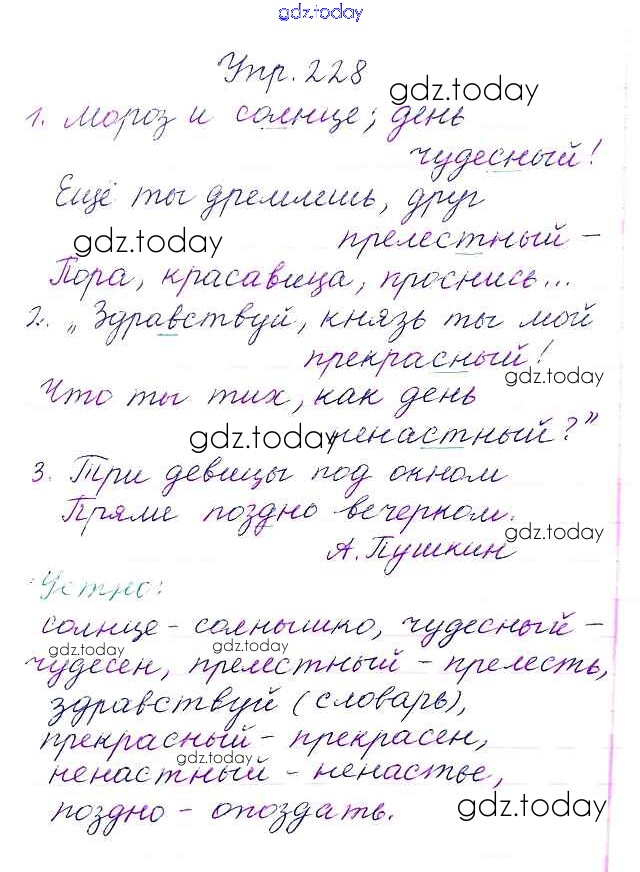 gdz.today
Упр. 228
gdz.today
1. Мороз и солнце; день
чудесный!
Ещё ты дремлешь, друг
gdz.today
прелестный –
Пора, красавица, проснись...
2. „Здравствуй, князь ты мой
прекрасный!
gdz.today
Что ты тих, как день
gdz.today
ненастный?”
3. Три девицы под окном
Пряли поздно вечерком.
gdz.today
А. Пушкин
Устно:
солнце – солнышко, чудесный –
gdz.today
gdz.today
чудесен, прелестный – прелесть,
gdz.today
здравствуй (словарь),
прекрасный – прекрасен,
gdz.today
ненастный – ненастье,
поздно – опоздать.
gdz.today